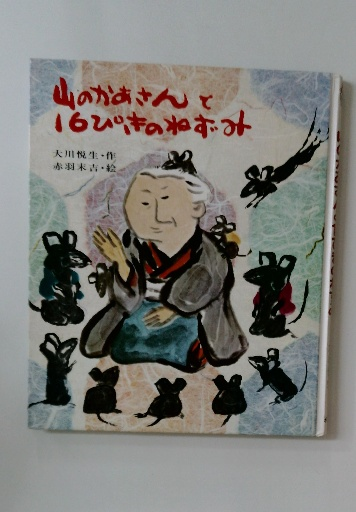 山のかあさんと
16ぴきのねずみ
大川悦生・作
赤羽末吉・絵